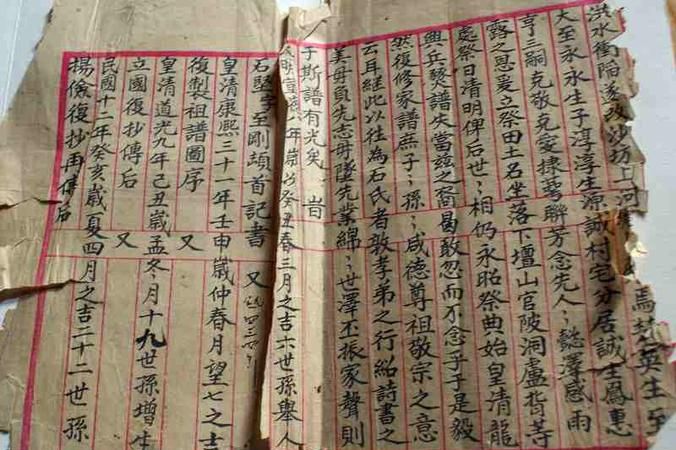 馬
英生至
洪水衝陷遂改沙坊上河
大至永永生子淳淳生源誠村宅分居誠生鳳惠
亨三嗣克敬克愛棣萼聯芳念先人懿澤感雨
露之恩爰立祭田土名坐落下壇山官陂洞蘆指等
處祭日清明俾后世相仍永昭祭典始皇清龍
興兵燹譜失當玆之裔曷敢忍而不念乎于是毅
然復修家譜庶子孫咸德尊祖敬宗之意
云耳繼此以往為石氏者敦孝弟之行紹詩書之
美毋負先志毋墜先業綿世澤丕振家聲則
于斯譜有光矣 旹
大明 六年歲次癸丑春三月之吉六世孫舉人
石堅 至剛頓首記書 又
皇清康熙三十一年壬申歲仲春月望七之吉
復製祖譜圖序 又
皇清道光九年己丑歲孟冬月十九世孫增生
立國復抄傳后 又
民國十二年癸亥歲夏四月之吉二十二世孫
揚 復抄再傳后